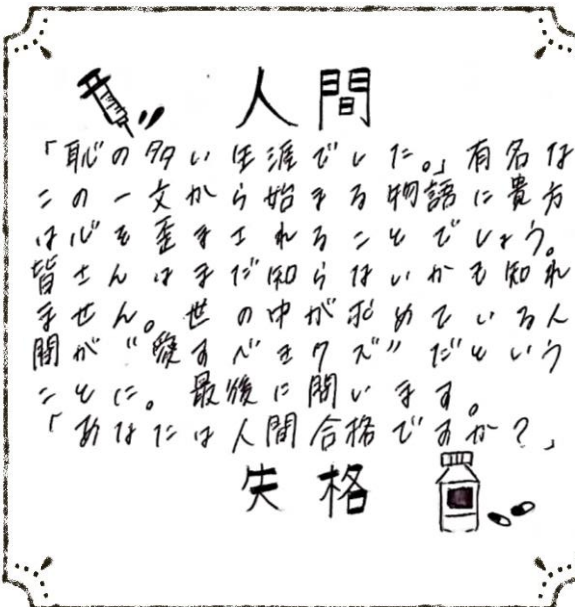 人間
「恥の多い生涯でした。」有名な
この一文から始まる物語に貴方
は心を歪まされることでしょう。
皆さんはまだ知らないかも知れ
ません。世の中が求めている人
間が“愛すべきクズ”だという
ことに。最後に問います。
「あなたは人間合格ですか？」
失格